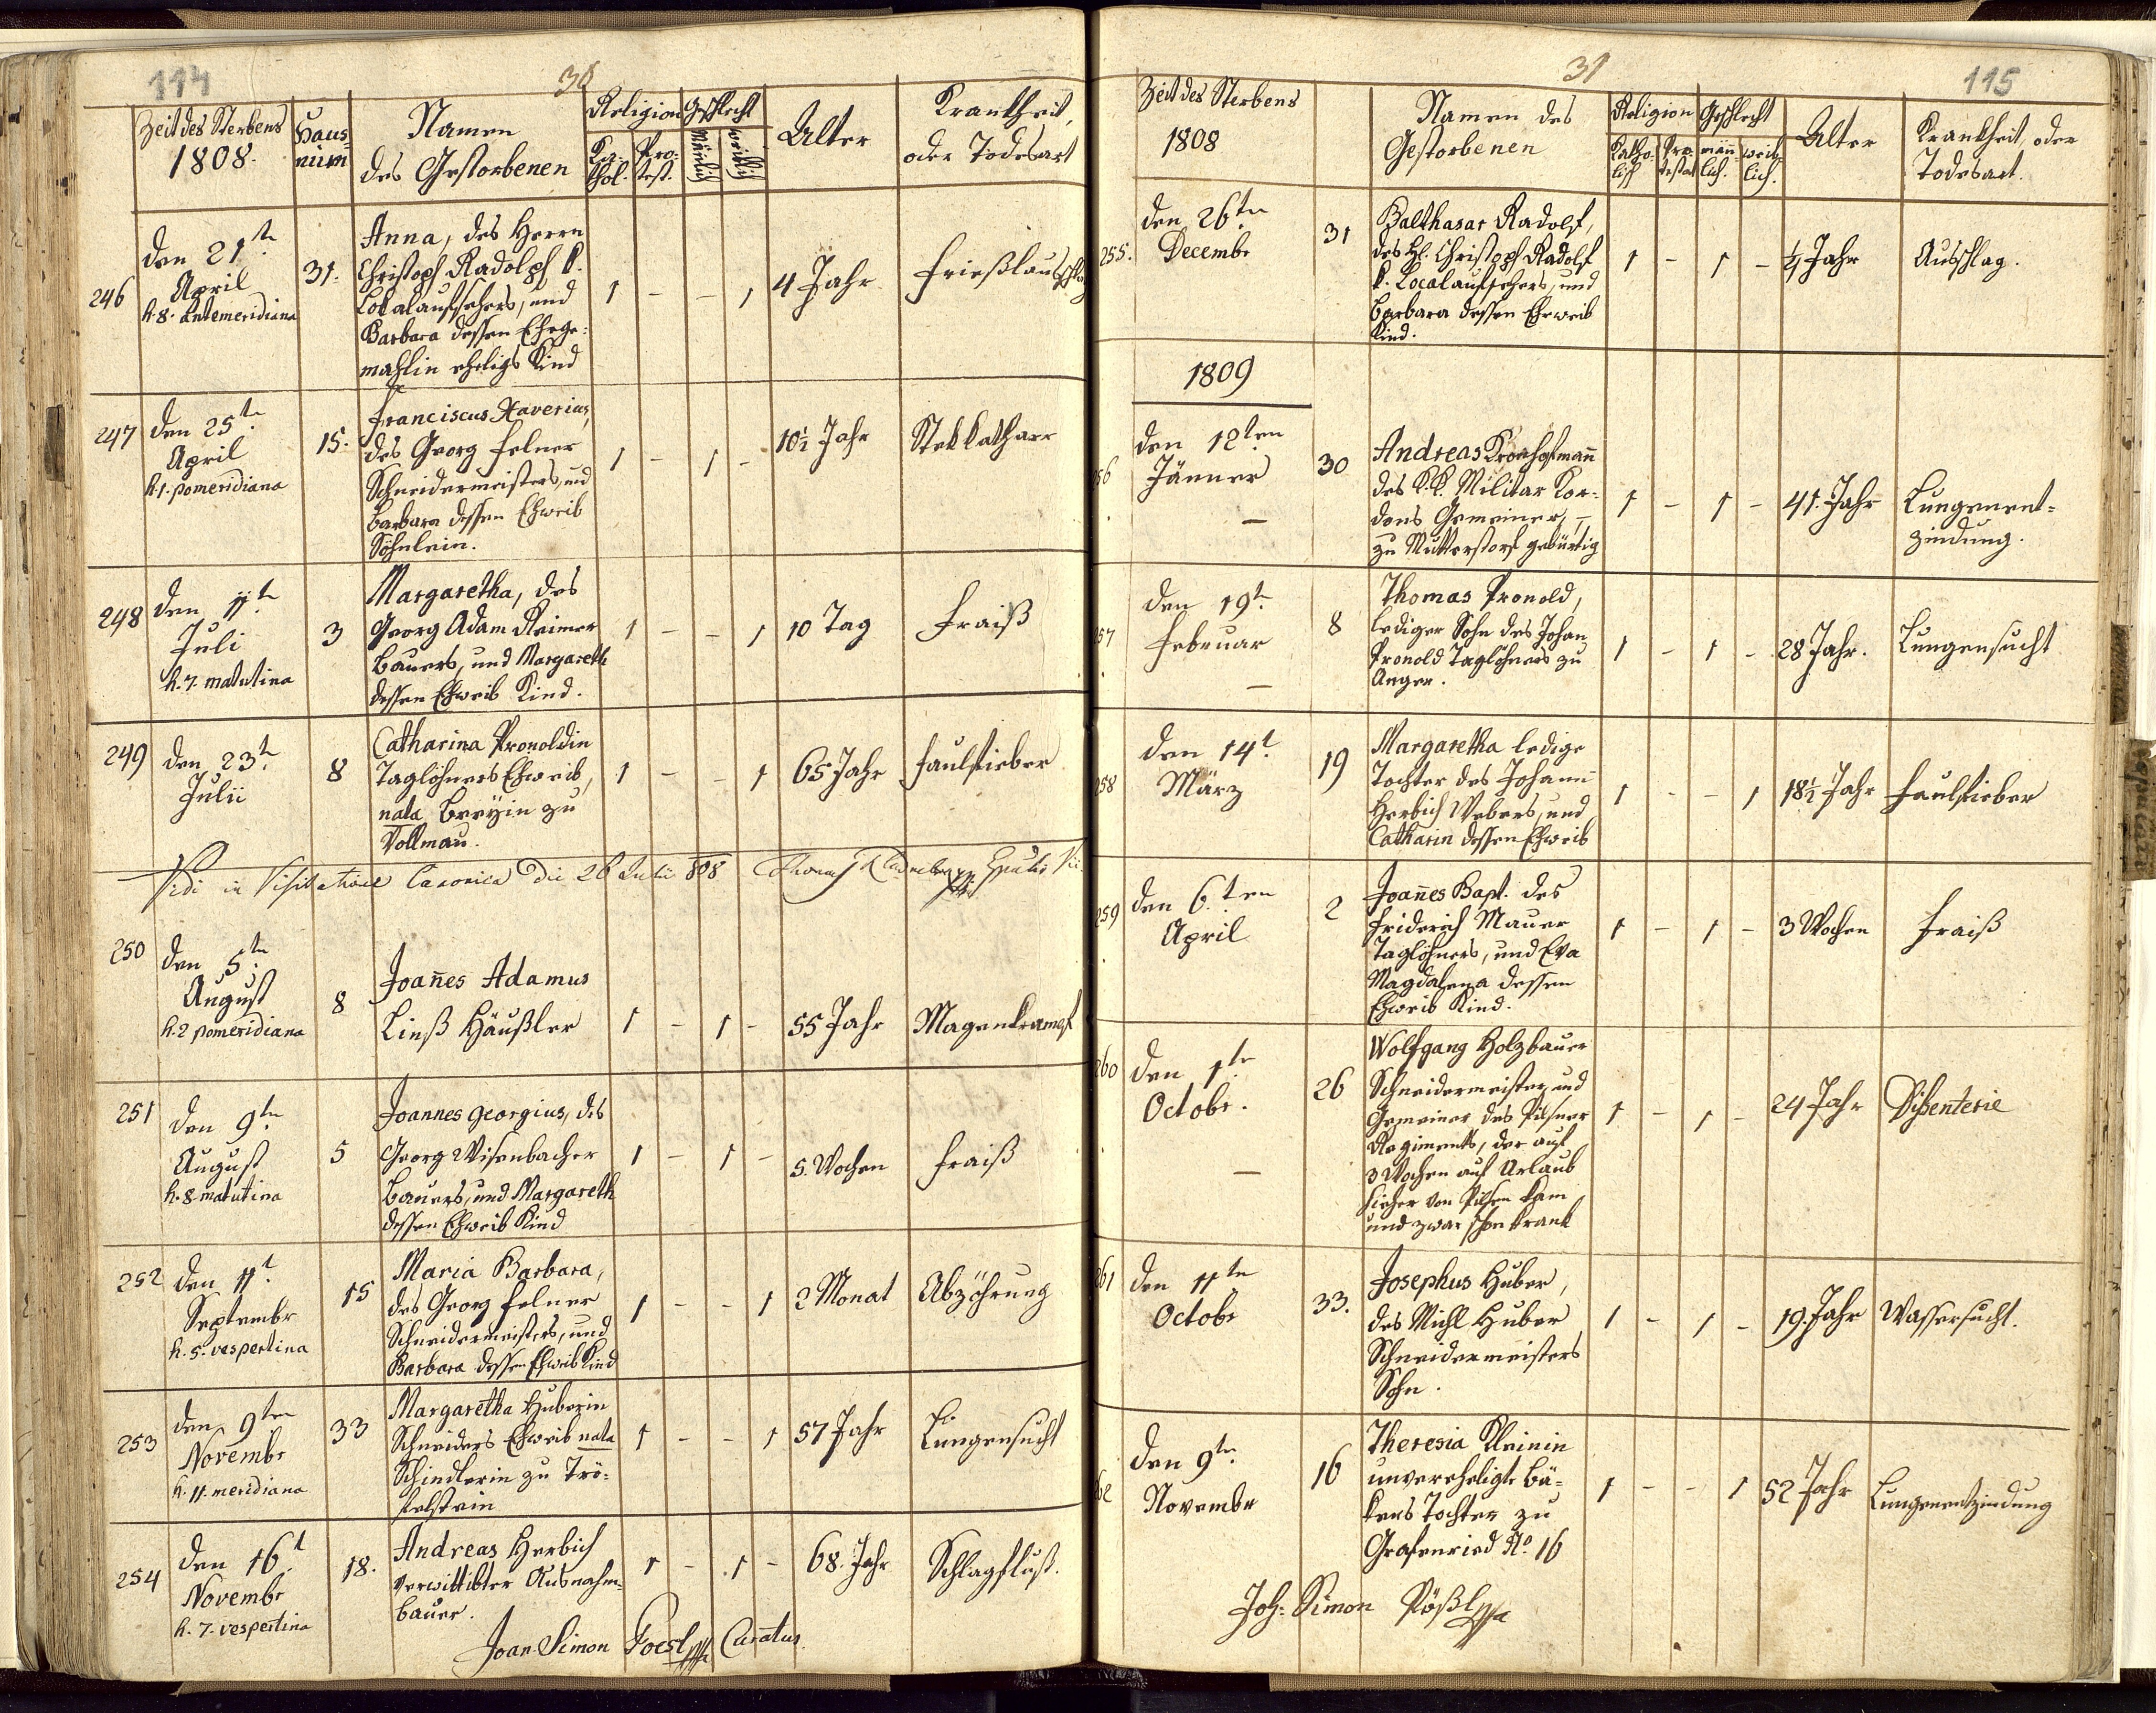 114
30
Zeit des Sterbens
1808.
Haus-
num
Namen
des Gestorbenen
Religion
Ka-
thol.
Pro-
test.
Geschlecht
Mänlich
Weiblich
Alter
Krankheit,
oder Todesart
246
den 21t.
April
h. 8. antemeridiana
31.
Anna, des Herrn
Christoph Radolph k.
Lokalaufsehers, und
Barbara dessen Ehege-
mahlin eheligs Kind
1 - - 1
4 Jahr
Frießlausschlag
247
den 25tn
April
h. 1. pomeridiana
15.
Franciscus Xaverius,
des Georg Felner
Schneidermeisters, und
Barbara dessen Eheweib
Söhnlein.
1 - 1 -
10½ Jahr
Stekkatharr
248
den 11tn
Juli
h. 7. matutina
3
Margaretha, des
Georg Adam Reimer
Bauers, und Margareth
dessen Eheweib Kind.
1 - - 1
10 Tag
Fraiß
249
den 23tn
Julii
8
Catharina Pronoldin
Taglöhners Eheweib,
nata Breÿin zu
Vollmau.
1 - - 1
65 Jahr
Faulfieber
Vidi in Visitatione Canonica die 26 Julii 808
250
den 5tn
August
h. 2 pomeridiana
8
Joan̄es Adamus
Linß Häußler
1 - 1 -
55 Jahr
Magenkrampf
251
den 9tn
August
h. 8. matutina
5
Joannes Georgius, des
Georg Wisenbacher
Bauers, und Margareth
dessen Eheweib Kind
1 - 1 -
5. Wochen
Fraiß
252
den 11t.
Septembr
h. 5. vespertina
15
Maria Barbara,
des Georg Felner
Schneidermeisters, und
Barbara dessen Eheweib Kind
1 - - 1
2 Monat
Abzöhrung
253
den 9ten
Novembr
h. 11. meridiana
33
Margaretha Huberin
Schneiders Eheweib nata
Schindlerin zu Trö-
felstein
1 - - 1
57 Jahr
Lungensucht
254
den 16t
Novembr
h. 7. vespertina
18.
Andreas Herbich
verwittibter Ausnahm-
bauer.
1 - 1 -
68. Jahr
Schlagfluß.
Joan. Simon Poesl Curatus
31
115
Zeit des Sterbens
1808
Namen des
Gestorbenen
Religion
Katho-
lisch
Pro-
testat
Geschlecht
män-
lich.
weib-
lich.
Alter
Krankheit, oder
Todesart.
255.
den 26tn
Decembr
31
Balthasar Radolf,
des H. Christoph Radolf
k. Localaufsehers, und
Barbara dessen Eheweib
Kind.
1 - 1 -
¼ Jahr
Ausschlag.
1809
56
den 12ten
Jänner
30
Andreas Kronhofman̄
des K.K. Militar Kor-
dons Gemeiner, -
zu Mutterstorf gebürtig
1 - 1 -
41. Jahr
Lungenent-
zindung.
57
den 19t.
Februar
8
Thomas Pronold,
lediger Sohn des Johan
Pronold Taglöhners zu
Anger.
1 - 1 -
28 Jahr.
Lungensucht
258
den 14t.
März
19
Margaretha ledige
Tochter des Johann
Herbich Webers, und
Catharin dessen Eheweib
1 - - 1
18½ Jahr
Faulfieber
259
den 6.ten
April
2
Joan̄es Bapt. des
Friderich Mauer
Taglöhners, und Eva
Magdalena dessen
Eheweib Kind.
1 - 1 -
3 Wochen
Fraiß
260
den 1tn
Octobr.
26
Wolfgang Holzbauer
Schneidermeister, und
Gemeiner des Pilsner
Regiments, der auf
3 Wochen auf Urlaub
hieher von Pilsen kam
und zwar schon krank
1 - 1 -
24 Jahr
Dißenterie
261
den 11tn
Octobr
33.
Josephus Huber,
des Michl Huber
Schneidermeisters
Sohn.
1 - 1 -
19. Jahr
Wassersucht.
62
den 9tn
Novembr
16
Theresia Kleinin
unverheligte Bä-
kers Tochter zu
Grafenried No. 16
1 - - 1
52 Jahr
Lungenentzindung
Joh: Simon Pößl